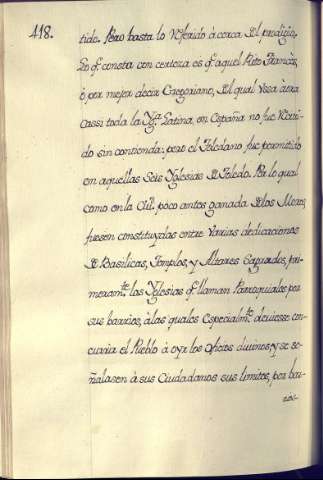 418.
tido. Pero basta lo referido à cerca del prodigio.
Lo q.e consta con certeza es q.e aquel Rito Francès,
ò por mejor decir Gregoriano, del qual Vsa aora
cassi toda la Yg.a Latina, en España no fue recivi-
do sin contienda: pero el Toledano fue permitido
en aquellas Seis Yglesias de Toledo. Por lo qual
como en la Ciu.d poco antes ganada de los Moros,
fuesen constituydas entre Varias dedicaciones
de Basilicas, Templos, y Altares Sagrados, pri-
meram.te las Yglesias q.e llaman Parroquiales por
sus barrios, à las quales Especialm.te deviesse con-
currir el Pueblo à oyr los Oficios divinos, y se se-
ñalasen à sus Ciudadanos sus limites, por bar-
rios-